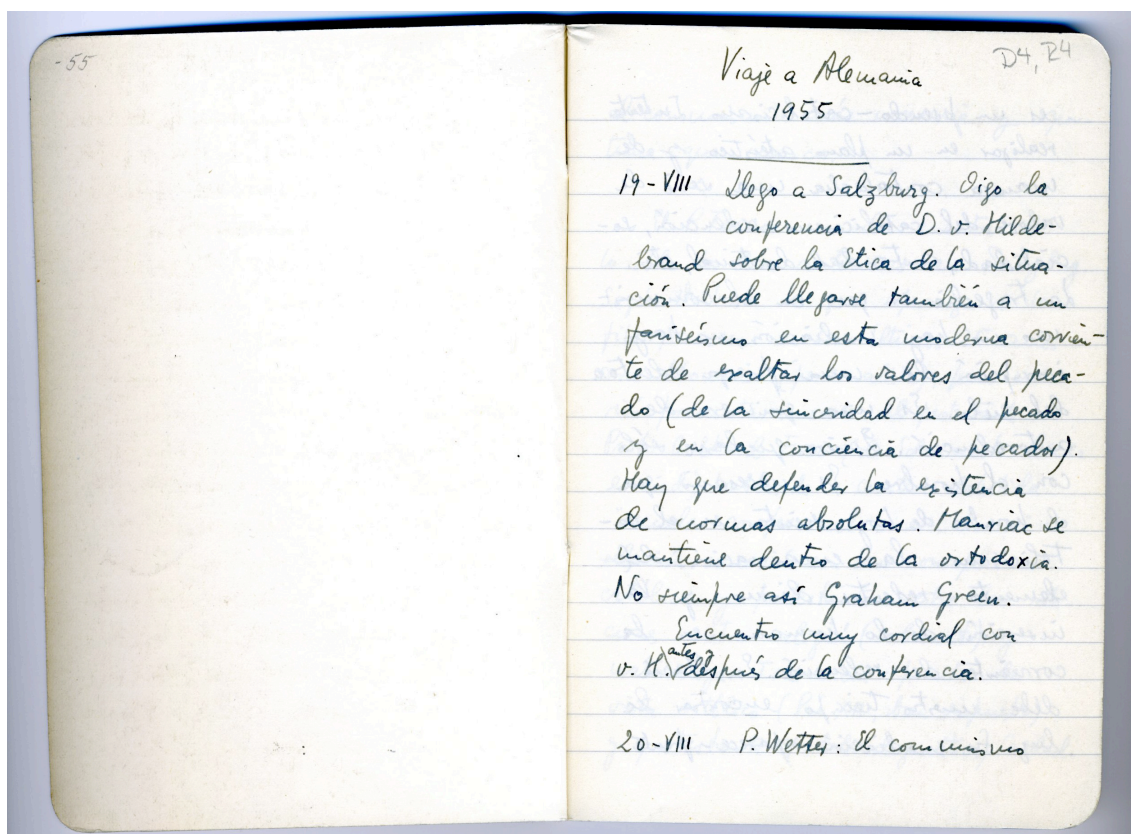 -55
D4, R4
Viaje a Alemania
1955
19-VIII Llego a Salzburg. Oigo la
conferencia de D. v. Hilde-
brand sobre la Etica de la situa-
ción. Puede llegarse también a un
fariseísmo en esta moderna corrien-
te de exaltar los valores del peca-
do (de la sinceridad en el pecado
y en la conciencia de pecador).
Hay que defender la existencia
de normas absolutas. Mauriac se
mantiene dentro de la ortodoxia.
No siempre así Graham Green.
Encuentro muy cordial con
v. H. antes y después de la conferencia.
20-VIII P. Wetter: El comunismo